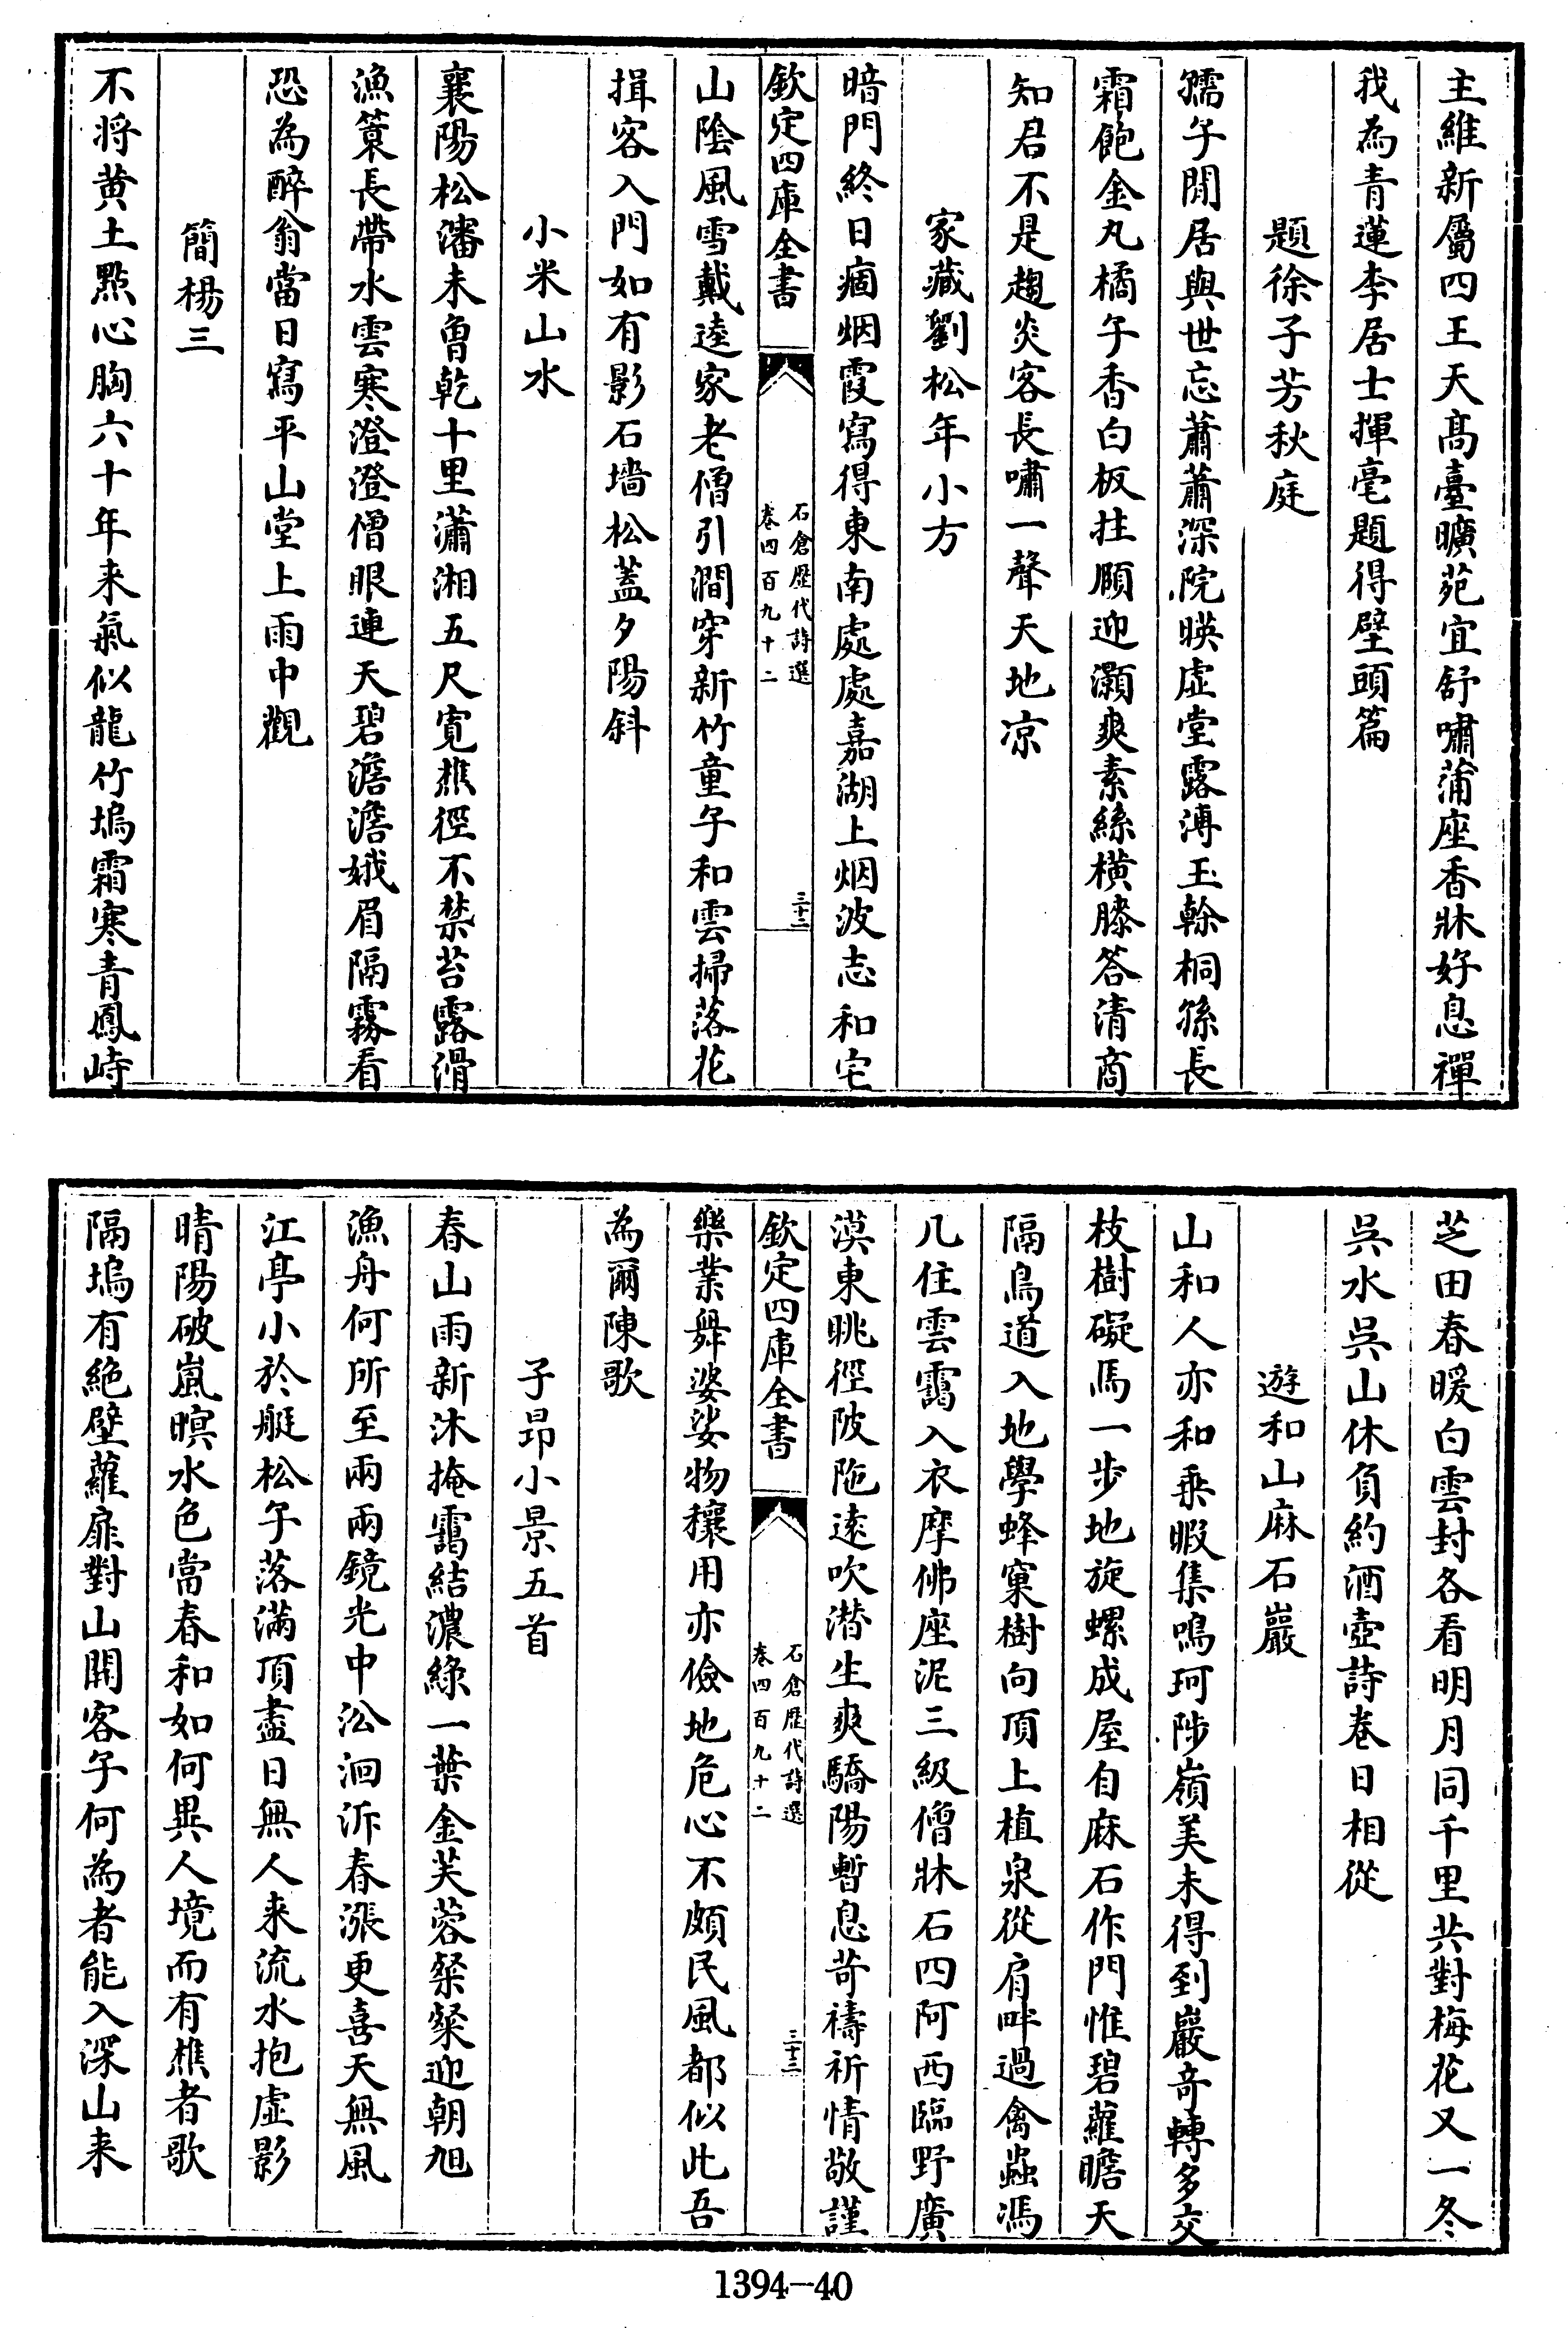 主維新屬四王天高臺曠苑宜舒嘯蒲座香牀好息禪
我為青蓮李居士揮毫題得壁頭篇
題徐子芳秋庭
孺子閒居與世忘蕭蕭深院暎虚堂露溥玉榦桐孫長
霜飽金丸橘子香白板拄頤迎灝爽素絲橫膝答清商
知君不是趨炎客長嘯一聲天地凉
家藏劉松年小方
暗門終日痼烟霞寫得東南處處嘉湖上烟波志和宅
欽定四庫全書
石倉歴代詩選
卷四百九十二
三十二
山陰風雪戴逵家老僧引澗穿新竹童子和雲掃落花
揖客入門如有影石墻松蓋夕陽斜
小米山水
襄陽松瀋未曾乾十里瀟湘五尺寛樵徑不禁苔露滑
漁簑長帶水雲寒澄澄僧眼連天碧澹澹娥眉隔霧看
恐為醉翁當日寫平山堂上雨中觀
簡楊三
不將黄土點心胸六十年来氣似龍竹塢霜寒青鳳峙
芝田春暖白雲封各看明月同千里共對梅花又一冬
吳水吳山休負約酒壺詩卷日相從
遊和山麻石巖
山和人亦和乗暇集鳴珂陟嶺美未得到巖奇轉多交
枝樹礙馬一步地旋螺成屋自麻石作門惟碧蘿瞻天
隔鳥道入地學蜂窠樹向頂上植泉從肩畔過禽蟲馮
几住雲靄入衣摩佛座泥三級僧牀石四阿西臨野廣
漠東眺徑陂陁逺吹潛生爽驕陽暫息苛禱祈情敬謹
欽定四庫全書
石倉歴代詩選
卷四百九十二
三十三
樂業舞婆娑物穰用亦儉地危心不頗民風都似此吾
為爾陳歌
子昂小景五首
春山雨新沐掩靄結濃綠一葉金芙蓉粲粲迎朝旭
漁舟何所至兩兩鏡光中㳂洄泝春漲更喜天無風
江亭小於艇松子落滿頂盡日無人来流水抱虚影
晴陽破嵐暝水色當春和如何異人境而有樵者歌
隔塢有絶壁蘿扉對山開客子何為者能入深山来
1394—40